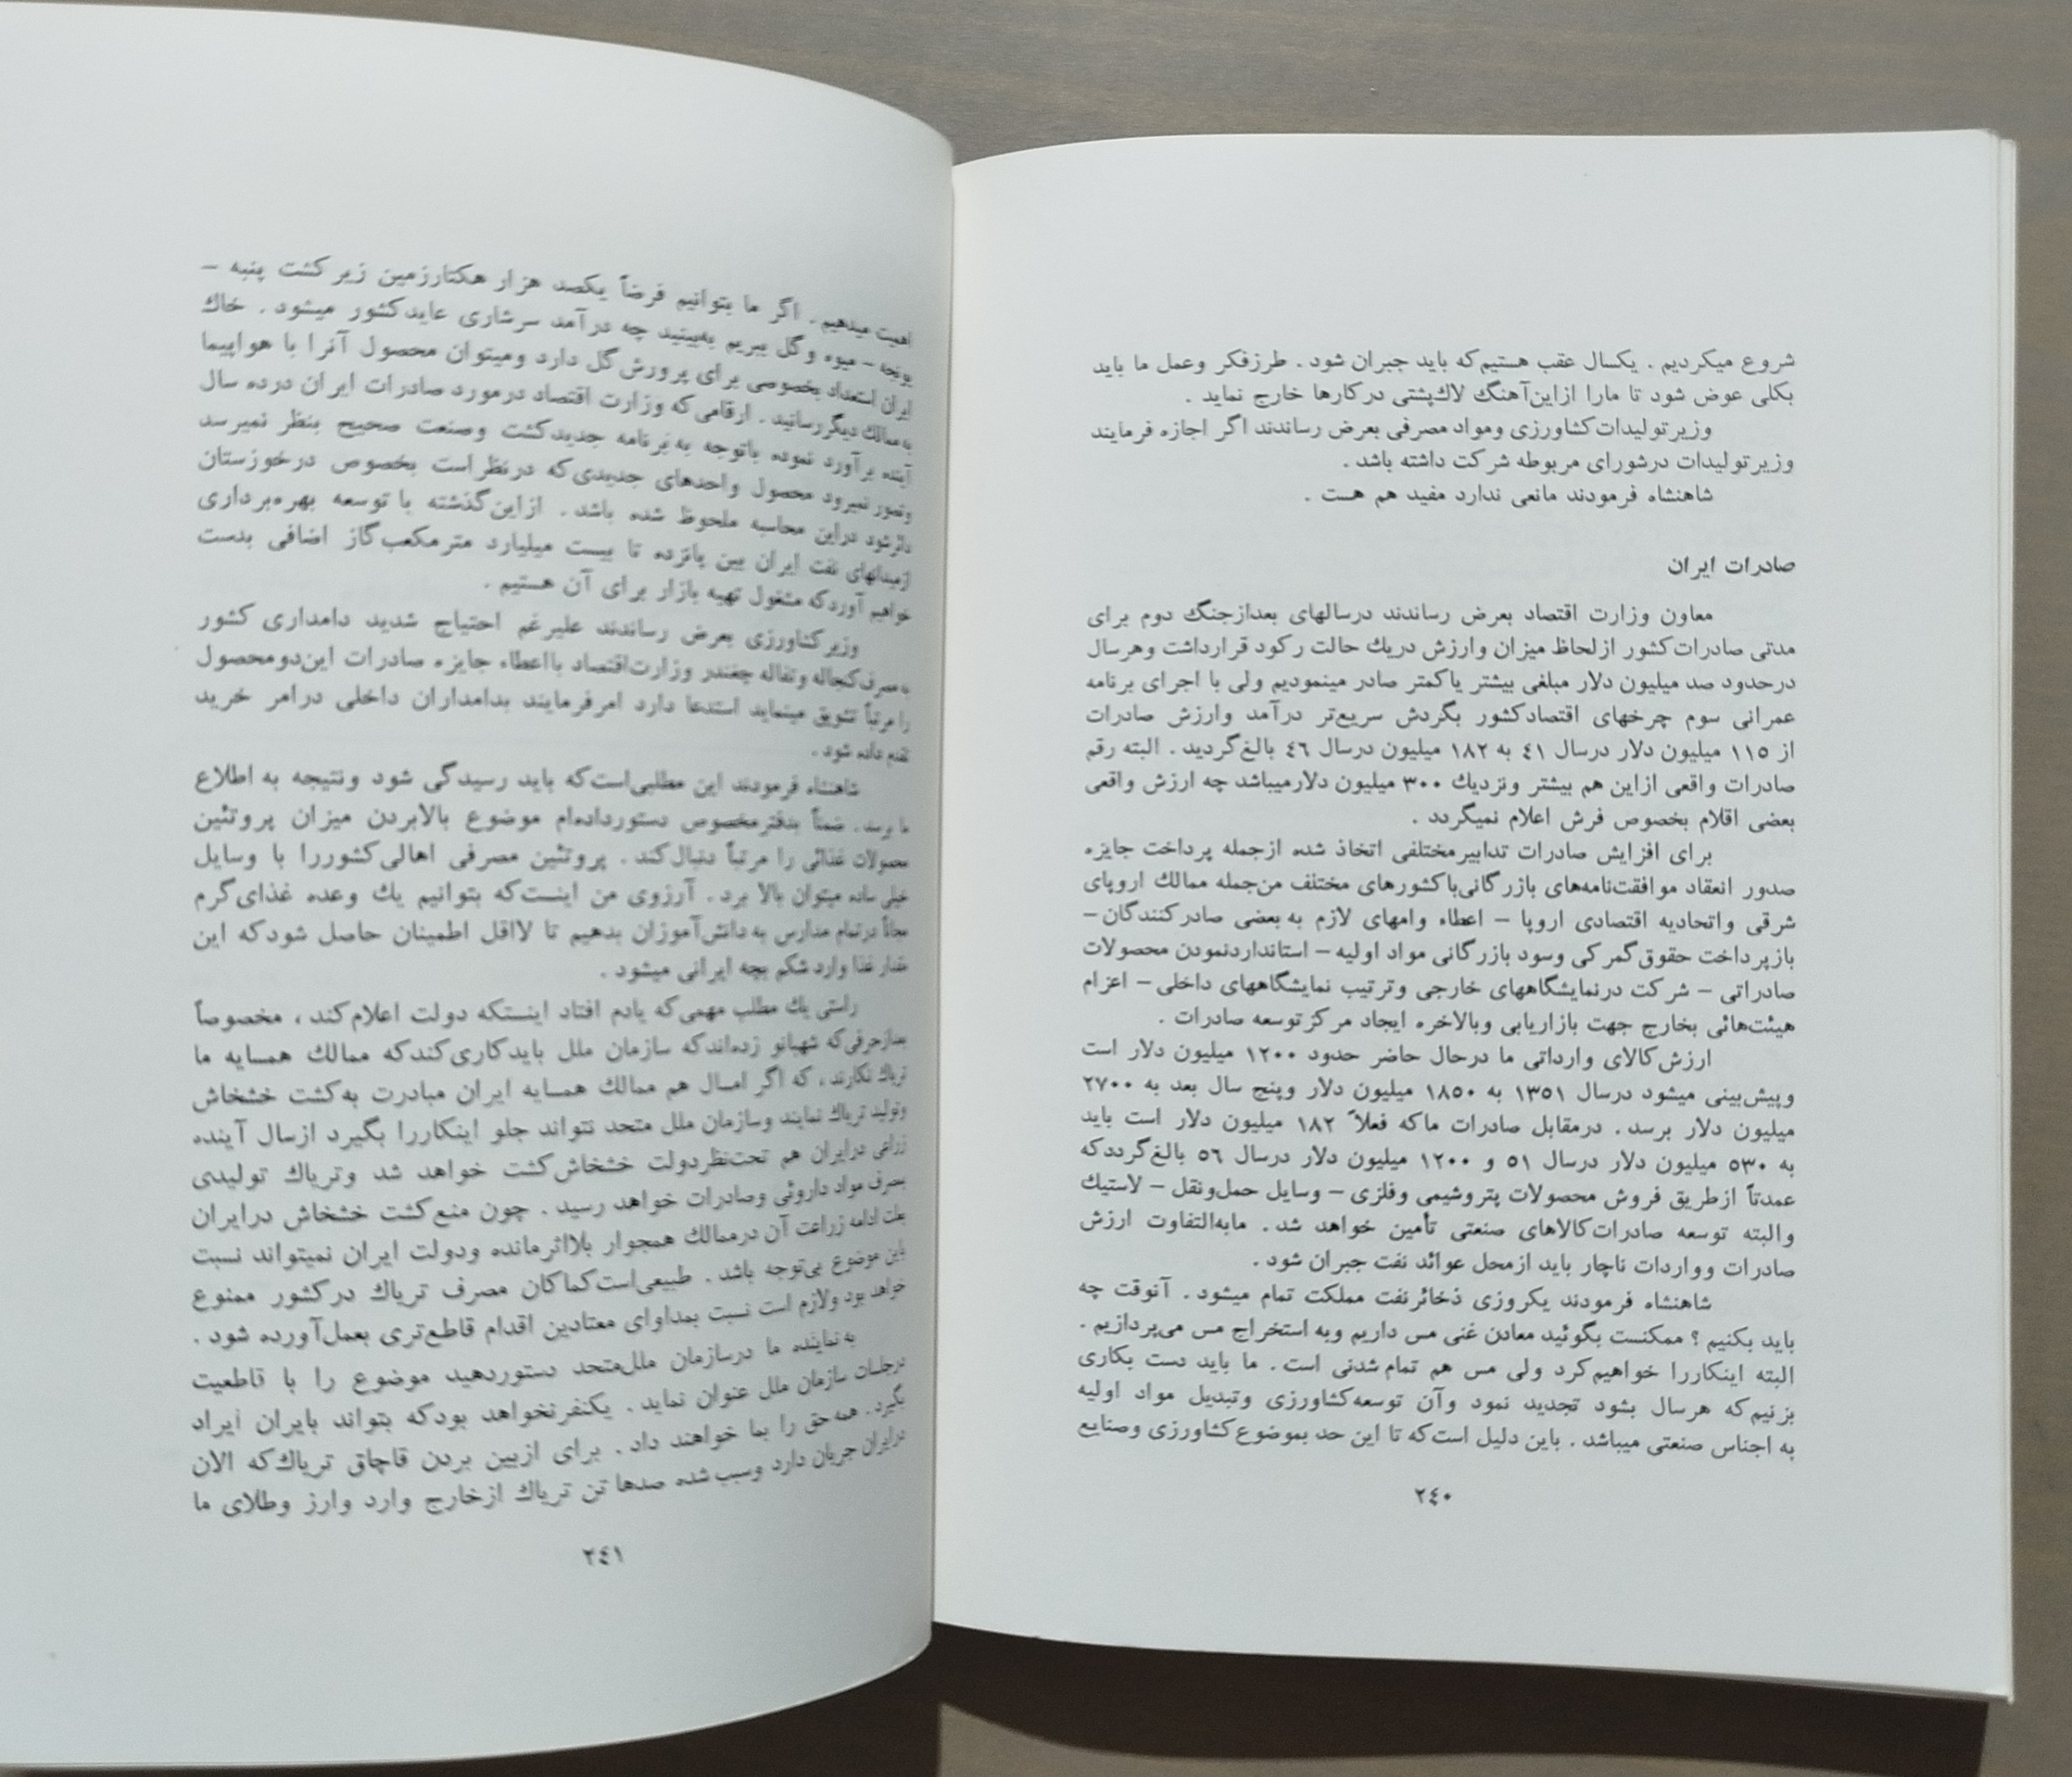 شروع میکردیم . یکسال عقب هستیم که باید جبران شود . طرزفکر وعمل ما باید
بکلی عوض شود تا مارا ازاین‌آهنگ لاك‌پشتی درکارها خارج نماید .
وزیرتولیدات‌کشاورزی ومواد مصرفی بعرض رساندند اگر اجازه فرمایند
وزیرتولیدات درشورای مربوطه شرکت داشته باشد .
شاهنشاه فرمودند مانعی ندارد مفید هم هست .
صادرات ایران
معاون وزارت اقتصاد بعرض رساندند درسالهای بعدازجنگ دوم برای
مدتی صادرات‌کشور ازلحاظ میزان وارزش دریك حالت رکود قرارداشت وهرسال
درحدود صد میلیون دلار مبلغی بیشتر یاکمتر صادر مینمودیم ولی با اجرای برنامه
عمرانی سوم چرخهای اقتصادکشور بگردش سریع‌تر درآمد وارزش صادرات
از ۱۱۵ میلیون دلار درسال ٤۱ به ۱۸۲ میلیون درسال ٤٦ بالغ‌گردید . البته رقم
صادرات واقعی ازاین هم بیشتر ونزدیك ۳۰۰ میلیون دلارمیباشد چه ارزش واقعی
بعضی اقلام بخصوص فرش اعلام نمیگردد .
برای افزایش صادرات تدابیرمختلفی اتخاذ شده ازجمله پرداخت جایزه
صدور انعقاد موافقت‌نامه‌های بازرگانی‌باکشورهای مختلف من‌جمله ممالك اروپای
شرقی واتحادیه اقتصادی اروپا – اعطاء وامهای لازم به‌بعضی صادرکنندگان–
بازپرداخت حقوق‌گمرکی وسود بازرگانی مواد اولیه – استانداردنمودن محصولات
صادراتی – شرکت درنمایشگاههای خارجی وترتیب نمایشگاههای داخلی – اعزام
هیئت‌هائی بخارج جهت بازاریابی وبالاخره ایجاد مرکزتوسعه صادرات .
ارزش‌کالای وارداتی ما درحال حاضر حدود ۱۲۰۰ میلیون دلار است
وپیش‌بینی میشود درسال ۱۳۵۱ به ۱۸۵۰ میلیون دلار وپنج سال بعد به ۲۷۰۰
میلیون دلار برسد . درمقابل صادرات ماکه فعلاً ۱۸۲ میلیون دلار است باید
به ۵۳۰ میلیون دلار درسال ۵۱ و ۱۲۰۰ میلیون دلار درسال ۵٦ بالغ‌گرددکه
عمدتاً ازطریق فروش محصولات پتروشیمی وفلزی – وسایل حمل‌ونقل – لاستیك
والبته توسعه صادرات‌کالاهای صنعتی تأمین خواهد شد . مابه‌التفاوت ارزش
صادرات وواردات ناچار باید ازمحل عوائد نفت جبران شود .
شاهنشاه فرمودند یکروزی ذخائرنفت مملکت تمام میشود . آنوقت چه
باید بکنیم ؟ ممکنست بگوئید معادن غنی مس داریم وبه استخراج مس می‌پردازیم .
البته اینکاررا خواهیم‌کرد ولی مس هم تمام شدنی است . ما باید دست بکاری
بزنیم‌که هرسال بشود تجدید نمود وآن توسعه‌کشاورزی وتبدیل مواد اولیه
به اجناس صنعتی میباشد . باین دلیل است‌که تا این حد بموضوع‌کشاورزی وصنایع
۲٤۰
اهمیت میدهیم . اگر ما بتوانیم فرضاً یکصد هزار هکتارزمین زیرکشت پنبه –
یونجه – میوه وگل ببریم به‌بینید چه درآمد سرشاری عایدکشور میشود . خاك
ایران استعداد بخصوصی برای پرورش‌گل دارد ومیتوان محصول آنرا با هواپیما
به ممالك دیگررسانید . ارقامی‌که وزارت اقتصاد درمورد صادرات ایران درده سال
آینده برآورد نموده باتوجه به‌برنامه جدیدکشت وصنعت صحیح بنظر نمیرسد
وتصور نمیرود محصول واحدهای جدیدی‌که درنظراست بخصوص درخوزستان
دائرشود دراین محاسبه ملحوظ شده باشد . ازاین‌گذشته با توسعه بهره‌برداری
ازمیدانهای نفت ایران بین پانزده تا بیست میلیارد مترمکعب‌گاز اضافی بدست
خواهیم آوردکه مشغول تهیه بازار برای آن هستیم .
وزیرکشاورزی بعرض رساندند علیرغم احتیاج شدید دامداری کشور
به‌مصرف‌کنجاله وتفاله چغندر وزارت‌اقتصاد بااعطاء جایزه صادرات این‌دومحصول
را مرتباً تشویق مینماید استدعا دارد امرفرمایند بدامداران داخلی درامر خرید
تقدم داده شود .
شاهنشاه فرمودند این مطلبی‌است‌که باید رسیدگی شود ونتیجه به اطلاع
ما برسد . ضمناً بدفترمخصوص دستورداده‌ام موضوع بالابردن میزان پروتئین
محصولات غذائی را مرتباً دنبال‌کند . پروتئین مصرفی اهالی‌کشوررا با وسایل
خیلی ساده میتوان بالا برد . آرزوی من اینست‌که بتوانیم یك وعده غذای‌گرم
مجاناً درتمام مدارس به‌دانش‌آموزان بدهیم تا لااقل اطمینان حاصل شودکه این
مقدار غذا وارد شکم بچه ایرانی میشود .
راستی یك مطلب مهمی‌که یادم افتاد اینستکه دولت اعلام‌کند ، مخصوصاً
بعدازحرفی‌که شهبانو زده‌اندکه سازمان ملل بایدکاری‌کندکه ممالك همسایه ما
تریاك نکارند ، که اگر امسال هم ممالك همسایه ایران مبادرت به‌کشت خشخاش
وتولید تریاك نمایند وسازمان ملل متحد نتواند جلو اینکاررا بگیرد ازسال آینده
زراعی درایران هم تحت‌نظردولت خشخاش‌کشت خواهد شد وتریاك تولیدی
بمصرف مواد داروئی وصادرات خواهد رسید . چون منع‌کشت خشخاش درایران
بعلت ادامه زراعت آن درممالك همجوار بلااثرمانده ودولت ایران نمیتواند نسبت
باین موضوع بی‌توجه باشد . طبیعی‌است‌کماکان مصرف تریاك درکشور ممنوع
خواهد بود ولازم است نسبت بمداوای معتادین اقدام قاطع‌تری بعمل‌آورده شود .
به نماینده ما درسازمان ملل‌متحد دستوردهید موضوع را با قاطعیت
درجلسات سازمان ملل عنوان نماید . یکنفرنخواهد بودکه بتواند بایران ایراد
بگیرد . همه حق را بما خواهند داد . برای ازبین بردن قاچاق تریاك‌که الان
درایران جریان دارد وسبب شده صدها تن تریاك ازخارج وارد وارز وطلای ما
۲٤۱